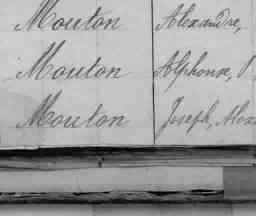 Mouton Alexandre,
Mouton Alphonse,
Mouton Joseph, Alex